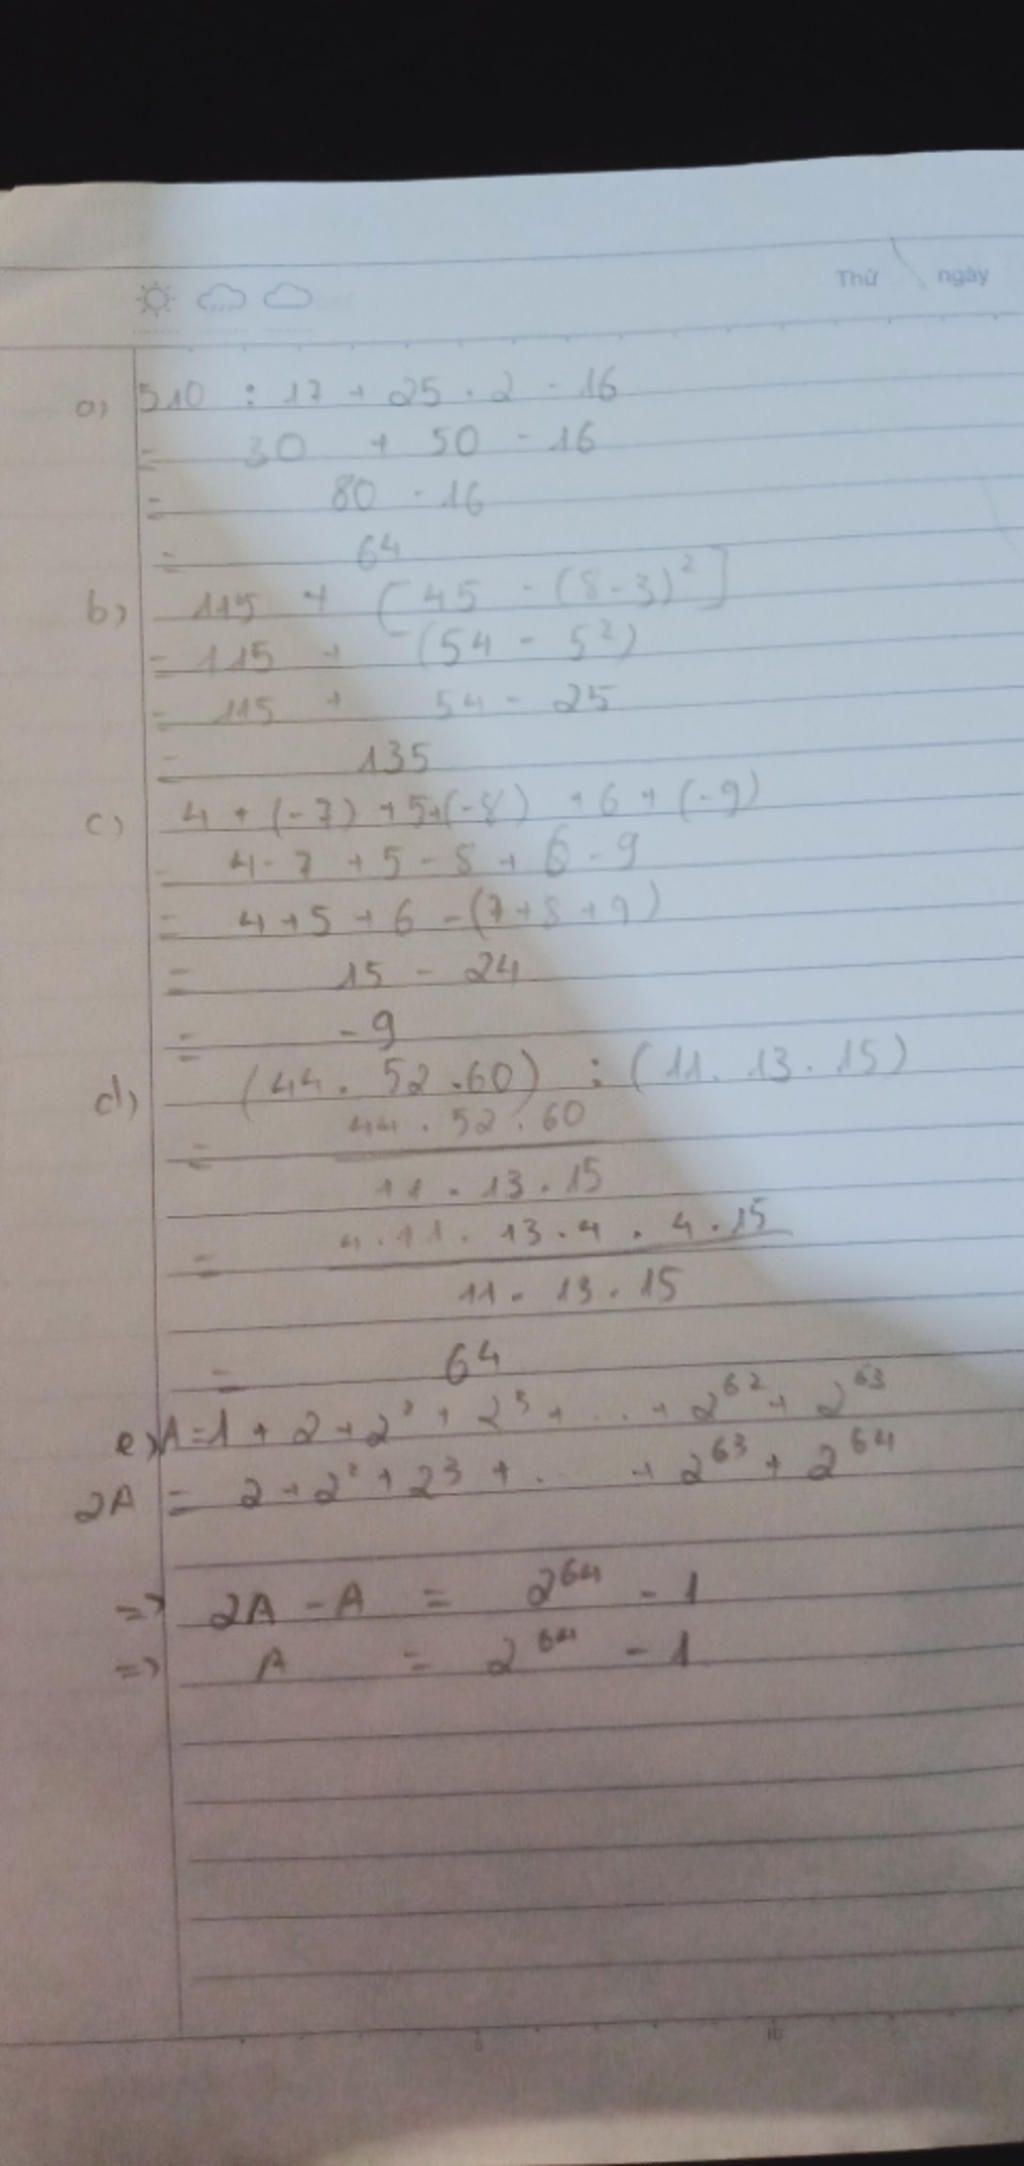 Thứ ngày
a) 510 : 17 + 25 . 2 - 16
= 30 + 50 - 16
= 80 - 16
= 64
b) 115 + [45 - (8-3)²]
= 115 + (54 - 5²)
= 115 + 54 - 25
= 135
c) 4 + (-7) + 5+(-8) + 6 + (-9)
= 4 - 7 + 5 - 8 + 6 - 9
= 4 + 5 + 6 - (7+8+9)
= 15 - 24
= -9
d) (44 . 52 . 60) : (11 . 13 . 15)
= 44 . 52 . 60
11 . 13 . 15
= 4 . 11 . 13 . 4 . 4 . 15
11 . 13 . 15
= 64
e) A = 1 + 2 + 2² + 2³ + ... + 2⁶² + 2⁶³
2A = 2 + 2² + 2³ + .... + 2⁶³ + 2⁶⁴
=> 2A - A = 2⁶⁴ - 1
=> A = 2⁶⁴ - 1
5 10